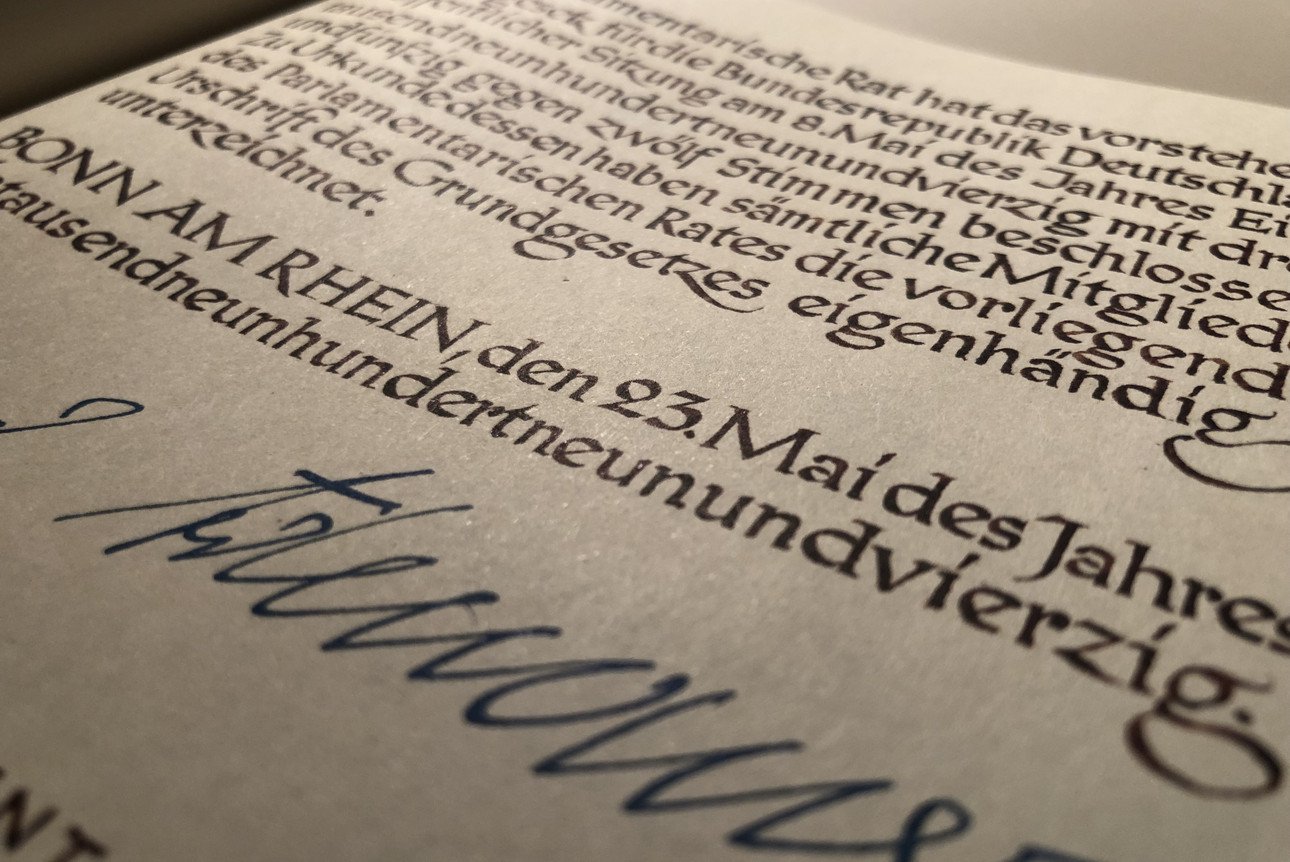 mentarische Rat hat das vorstehe
für die Bundesrepublik Deutschla
öffentlicher Sitzung am 8. Mai des Jahres Ei
neunhundertneunundvierzig mit dre
undfünfzig gegen zwölf Stimmen beschlosse
Zu Urkunde dessen haben sämtliche Mitglied
des Parlamentarischen Rates die vorliegend
Urschrift des Grundgesetzes eigenhändig
unterzeichnet.
BONN AM RHEIN, den 23. Mai des Jahres
tausendneunhundertneunundvierzig.
NT